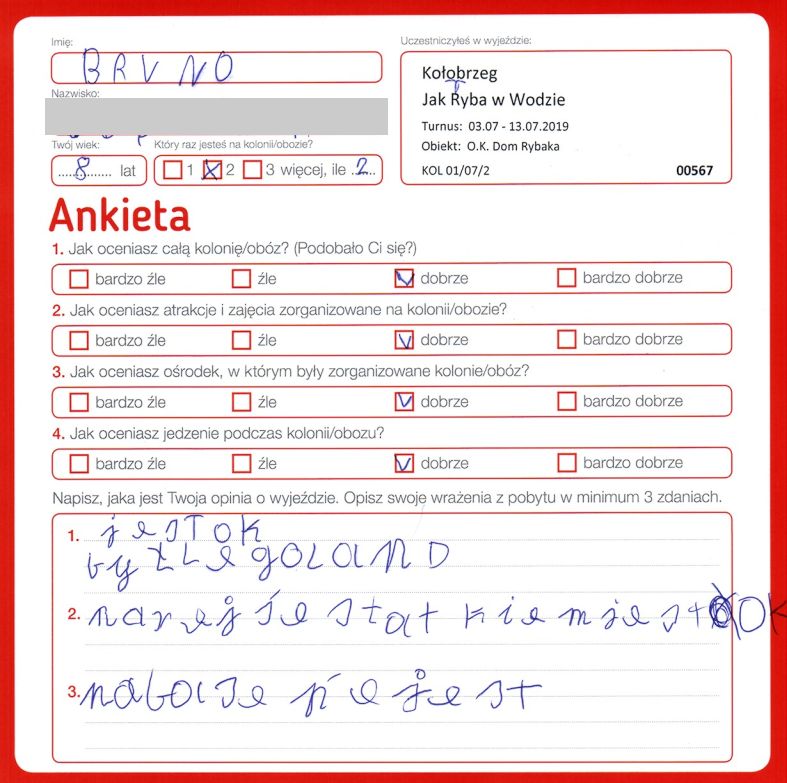 Imię:
BRUNO
Nazwisko:
Twój wiek:
8 lat
Który raz jesteś na kolonii/obozie?
1 2 3 więcej, ile 2
Uczestniczyłeś w wyjeździe:
Kołobrzeg
Jak Ryba w Wodzie
Turnus: 03.07 - 13.07.2019
Obiekt: O.K. Dom Rybaka
KOL 01/07/2 00567
Ankieta
1. Jak oceniasz całą kolonię/obóz? (Podobało Ci się?)
bardzo źle źle dobrze bardzo dobrze
2. Jak oceniasz atrakcje i zajęcia zorganizowane na kolonii/obozie?
bardzo źle źle dobrze bardzo dobrze
3. Jak oceniasz ośrodek, w którym były zorganizowane kolonie/obóz?
bardzo źle źle dobrze bardzo dobrze
4. Jak oceniasz jedzenie podczas kolonii/obozu?
bardzo źle źle dobrze bardzo dobrze
Napisz, jaka jest Twoja opinia o wyjeździe. Opisz swoje wrażenia z pobytu w minimum 3 zdaniach.
1. jest OK
LEGOLAND
2. statkiem jest OK
3. jest